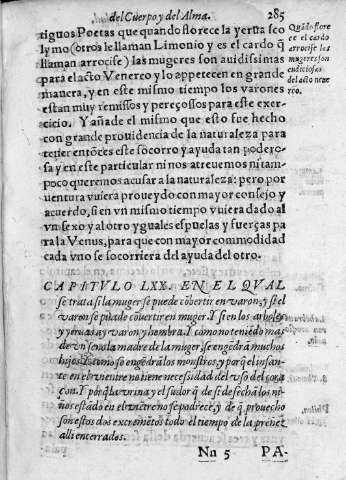 del Cuerpo y del Alma. 285
tiguos Poetas que quando florece la yerua sco
lymo (otros le llaman Limonio y es el cardo q̃
llaman arrocife) las mugeres son auidissimas
para el acto Venereo y lo appetecen en grande
manera, y en este mismo tiempo los varones
estan muy remissos y pereçosos para este exer-
cicio. Y añade el mismo que esto fue hecho
con grande prouidencia de la naturaleza para
tener entõces este socorro y ayuda tan podero-
sa y en este particular ni nos atreuemos ni tam-
poco queremos acusar a la naturaleza: pero por
uentura vuiera proueydo con mayor consejo y
acuerdo, si en vn mismo tiempo vuiera dado al
vn sexo y al otro yguales espuelas y fuerças pa
ra la Venus, para que con mayor commodidad
cada vno se socorriera del ayuda del otro.
Quãdo flore
ce el cardo
arrocife las
mugeres son
cudiciosas
del acto vene
reo.
CAPITVLO LXX. EN EL QVAL
se trata si la muger se puede cõuertir en varon, y si el
varon se puede cõuertir en muger. Y si en los arboles
y yeruas ay varon y hembra. Y como no teniẽdo mas
de vn seno la madre de la muger, se engendrã muchos
hijos. Y como se engẽdrã los monstros, y porq̃ el infan-
te en el vientre no tiene necessidad del vso del cora
çon. Y porq̃ la vrina y el sudor q̃ de si de fecha los ni-
ños estãdo en el viẽtre no se podrece, y de q̃ prouecho
son estos dos excremẽtos todo el tiempo de la preñez
alli encerrados.
Nn 5 PA-